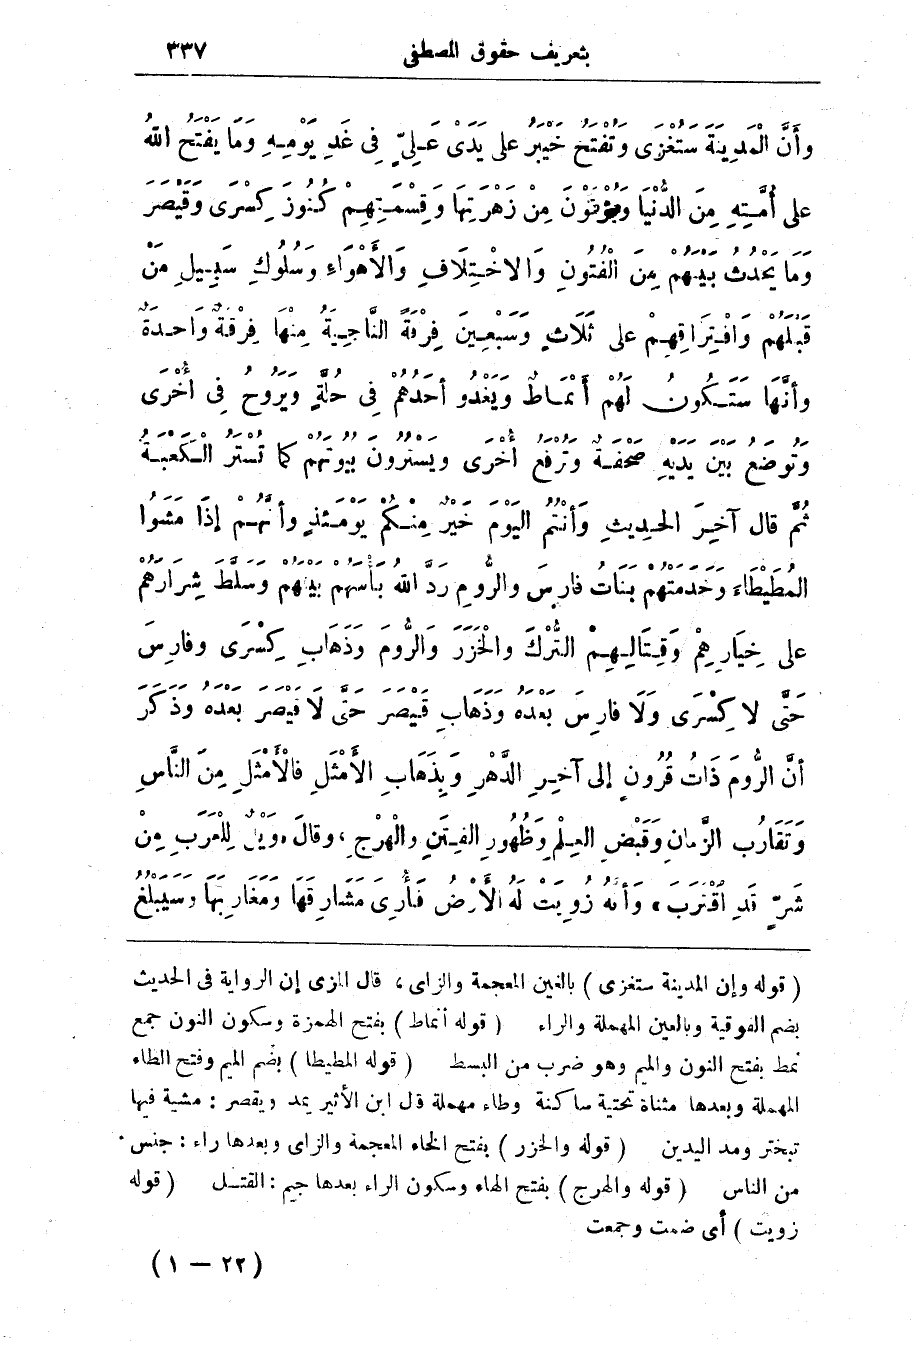 بتعريف حقوق المصطفى ٣٣٧
وأَنَّ الْمَدِينَةَ سَتُغْزَى وَتُفْتَحُ خَيْبَرُ على يَدَىْ عَلِىٍّ فِى غَدِ يَوْمِهِ وَمَا يَفْتَحُ اللهُ
على أُمَّتِهِ مِنَ الدُّنْيَا وَيُؤْتَوْنَ مِنْ زَهْرَتِهَا وَقِسْمَتِهِمْ كُنُوزَ كِسْرَى وَقَيْصَرَ
وَمَا يَحْدُثُ بَيْنَهُمْ مِنَ الْفُتُونِ وَالاخْتِلَافِ وَالْأَهْوَاءِ وَسُلُوكِ سَبِيلِ مَنْ
قَبْلَهُمْ وَافْتِرَاقِهِمْ على ثَلَاثٍ وَسَبْعِينَ فِرْقَةً النَّاجِيَةُ مِنْهَا فِرْقَةٌ وَاحِدَةٌ
وأنَّهَا سَتَكُونُ لَهُمْ أَنْمَاطٌ وَيَغْدُو أحَدُهُمْ فى حُلَّةٍ وَيَرُوحُ فى أُخْرَى
وَتُوضَعُ بَيْنَ يَدَيْهِ صَحْفَةٌ وَتُرْفَعُ أُخْرَى وَيَسْتُرُونَ بُيُوتَهُمْ كما تُسْتَرُ الْكَعْبَةُ
ثُمَّ قال آخِرَ الحديثِ وَأَنْتُمُ اليَوْمَ خَيْرٌ مِنْكُمْ يَوْمَئِذٍ وأنَّهُمْ إذَا مَشَوُا
المُطَيْطَاءَ وَخَدَمَتْهُمْ بَنَاتُ فارِسَ والرُّومِ رَدَّ اللهُ بَأْسَهُم بَيْنَهُمْ وَسَلَّطَ شِرَارَهُمْ
على خِيَارِهِمْ وَقِتَالِهِمْ التُّرْكَ والْخَزَرَ وَالرُّومَ وَذَهَابِ كِسْرَى وفارِسَ
حَتَّى لا كِسْرَى وَلَا فارِسَ بَعْدَهُ وَذَهَابِ قَيْصَرَ حَتَّى لَا قَيْصَرَ بَعْدَهُ وَذَكَرَ
أنَّ الرُّومَ ذَاتُ قُرُونٍ إلى آخِرِ الدَّهْرِ وَبِذَهَابِ الأَمْثَلِ فالْأَمْثَلِ مِنَ النَّاسِ
وَتَقَارُبِ الزَّمانِ وَقَبْضِ العِلْمِ وَظُهُورِ الفِتَنِ والْهَرْجِ ، وقالَ «وَيْلٌ لِلْعَرَبِ مِنْ
شَرٍّ قَدِ اقْتَرَبَ» وَأنَّهُ زُوِيَتْ لَهُ الأَرْضُ فَأُرِىَ مَشَارِقَهَا وَمَغَارِبَهَا وَسَيَبْلُغُ
( قوله وإن المدينة ستغزى ) بالغين المعجمة والزاى ، قال المزى إن الرواية فى الحديث
بضم الفوقية وبالعين المهملة والراء ( قوله أنماط ) بفتح الهمزة وسكون النون جمع
نمط بفتح النون والميم وهو ضرب من البسط ( قوله المطيطا ) بضم الميم وفتح الطاء
المهملة وبعدها مثناة تحتية ساكنة وطاء مهملة قال ابن الأثير يمد ويقصر : مشية فيها
تبختر ومد اليدين ( قوله والخزر ) بفتح الخاء المعجمة والزاى وبعدها راء : جنس
من الناس ( قوله والهرج ) بفتح الهاء وسكون الراء بعدها جيم : القتل ( قوله
زويت ) أى ضمت وجمعت
(٢٢ – ١)